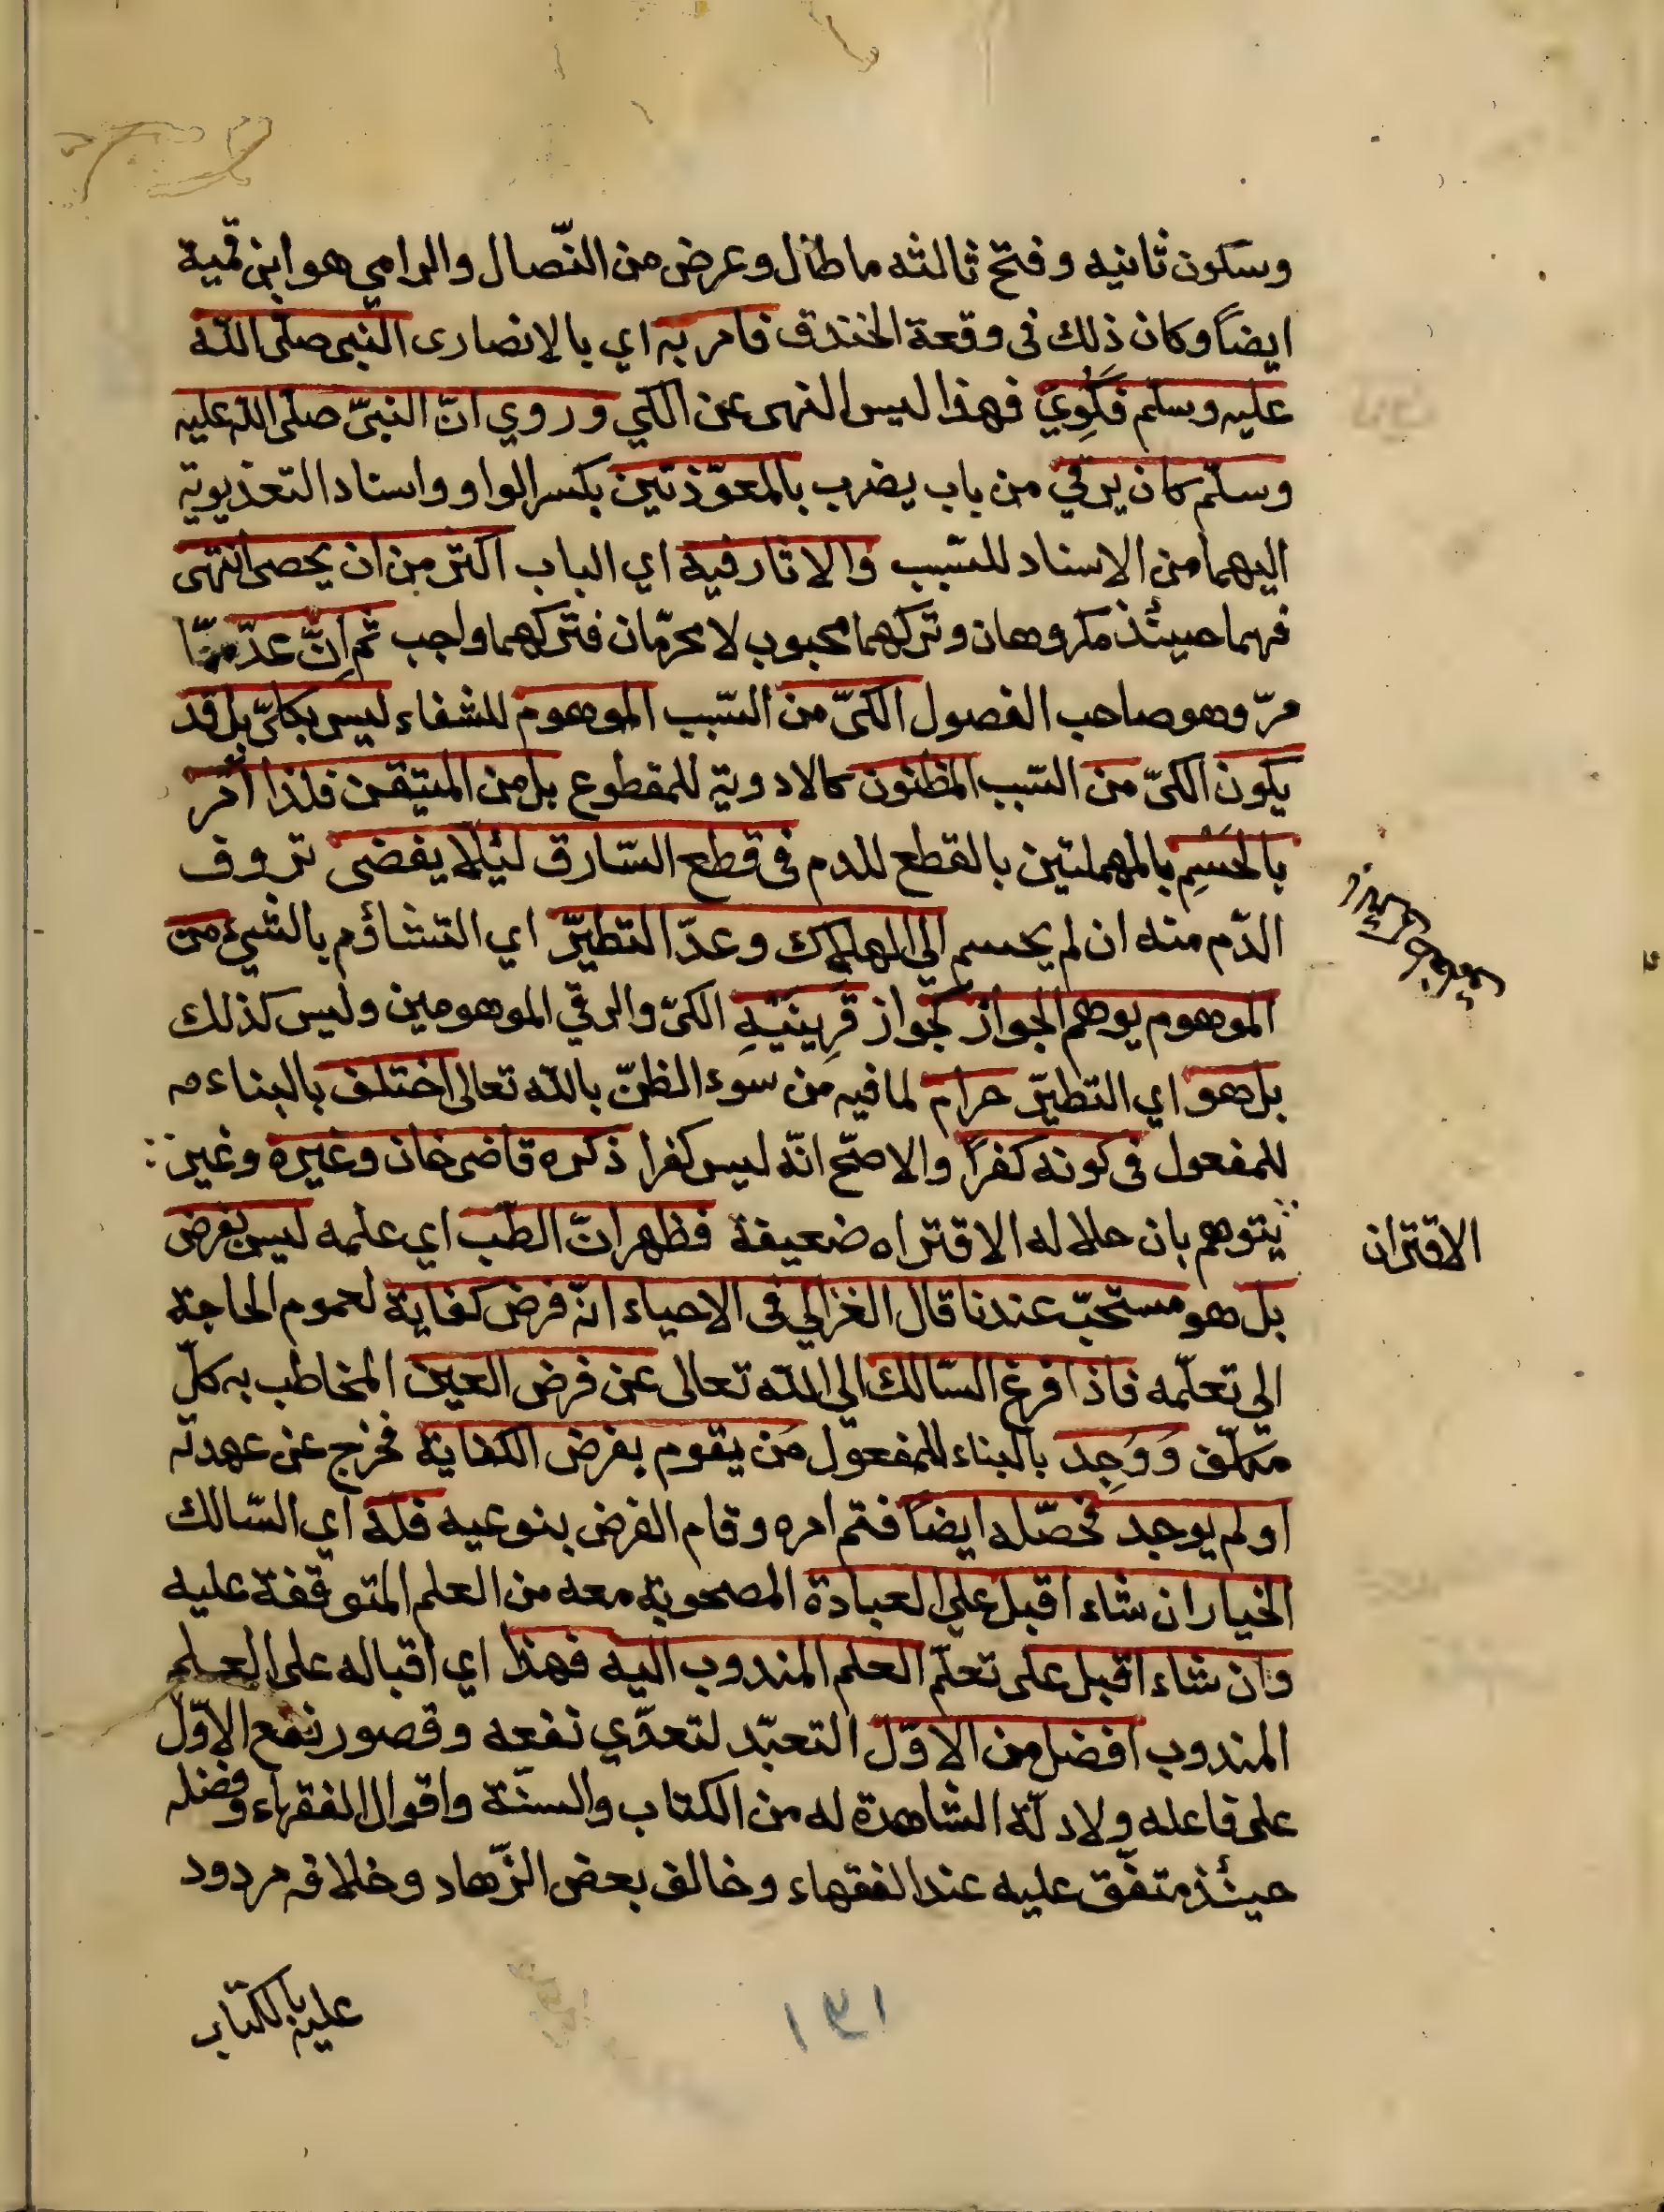 وسكون ثانيه وفتح ثالثه ما طال وعرض من النّصال والرامي هو ابن قمية
ايضاً وكان ذلك فى وقعة الخندق فامر به اي بالانصارى النبى صلى الله
عليه وسلم فكُوِيَ فهذا ليس النهى عن الكي وروي انّ النبىّ صلى الله عليه
وسلّم كان يرقي من باب يضرب بالمعوّذتين بكسر الواو واسناد التعذيوية
اليهما من الاسناد للسّبب والاثار فيه اي الباب اكثر من ان يحصى انتهى
فهما حينئذ مكروهان وتركهما محبوب لا محرّمان فتركهما واجب ثم انّ عدّ
مرّ وهو صاحب الفصول الكىّ من السّبب الموهوم للشفاء ليس بكلىّ بل قد
يكون الكىّ من السّبب المظنون كالادوية للمقطوع بل من المتيقن فلذا اُمر
بالحَسمِ بالمهملتين بالقطع للدم فى قطع السّارق ليئلّا يفضى تروف
الدّم منه ان لم يحسم الي الهلاك وعدّ التطيّر اي التشاؤم بالشيء من
الموهوم يوهم الجواز كجواز قَرِينَيْهِ الكىّ والرقي الموهومين وليس كذلك
بل هو اي التطيّر حرام لما فيه من سوء الظنّ بالله تعالى اختلف بالبناء
للمفعول فى كونه كفراً والاصحّ انّه ليس كفرا ذكره قاضى خان وغيره وغير
يتوهم بان حلاله الاقتراه ضعيفة فظهر انّ الطّب اي علمه ليس بفرض
الاقتران
بل هو مستحبّ عندنا قال الغزالي فى الاحياء انّه فرض كفاية لعموم الحاجة
الى تعلّمه فاذا فرغ السّالك الي الله تعالى عن فرض العين المخاطب به كلّ
مكلّف وَوُجِد بالبناء للمفعول مَن يقوم بفرض الكفاية فخرج عن عهدته
او لم يوجد فحصّله ايضاً فتم امره وقام الفرض بنوعيه فله اي السّالك
الخيار ان شاء اقبل علي العبادة المصحوبة معه من العلم المتوقفة عليه
وان شاء اقبل على تعلّم العلم المندوب اليه فهذا اي اقباله على العلم
المندوب افضل من الاوّل التعبّد لتعدّي نفعه وقصور نفع الاوّل
على فاعله ولادلّة الشاهدة له من الكتاب والسنّة واقوال الفقهاء وفضله
حينئذ متفّق عليه عند الفقهاء وخالف بعض الزّهاد وخلافه مردود
عليه بالكتاب
١٣١